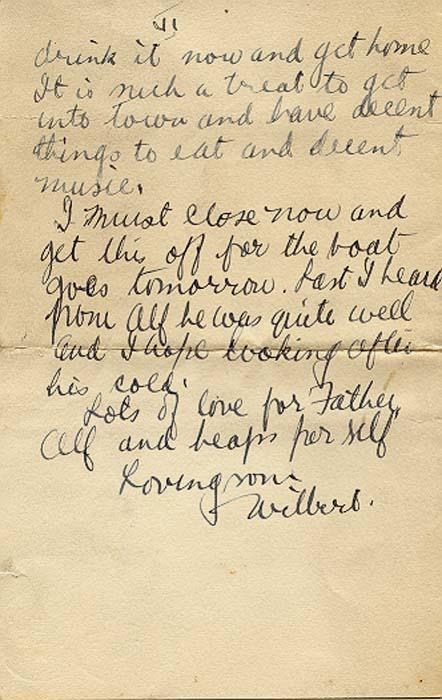 VI
drink it now and get home
It is such a treat to get
into town and have decent
things to eat and decent
music.
I must close now and
get this off for the boat
goes tomorrow. Last I heard
from Alf he was quite well
and I hope looking after
his cold.
Lots of love for Father,
Alf and heaps for self
Loving son
Wilbert.